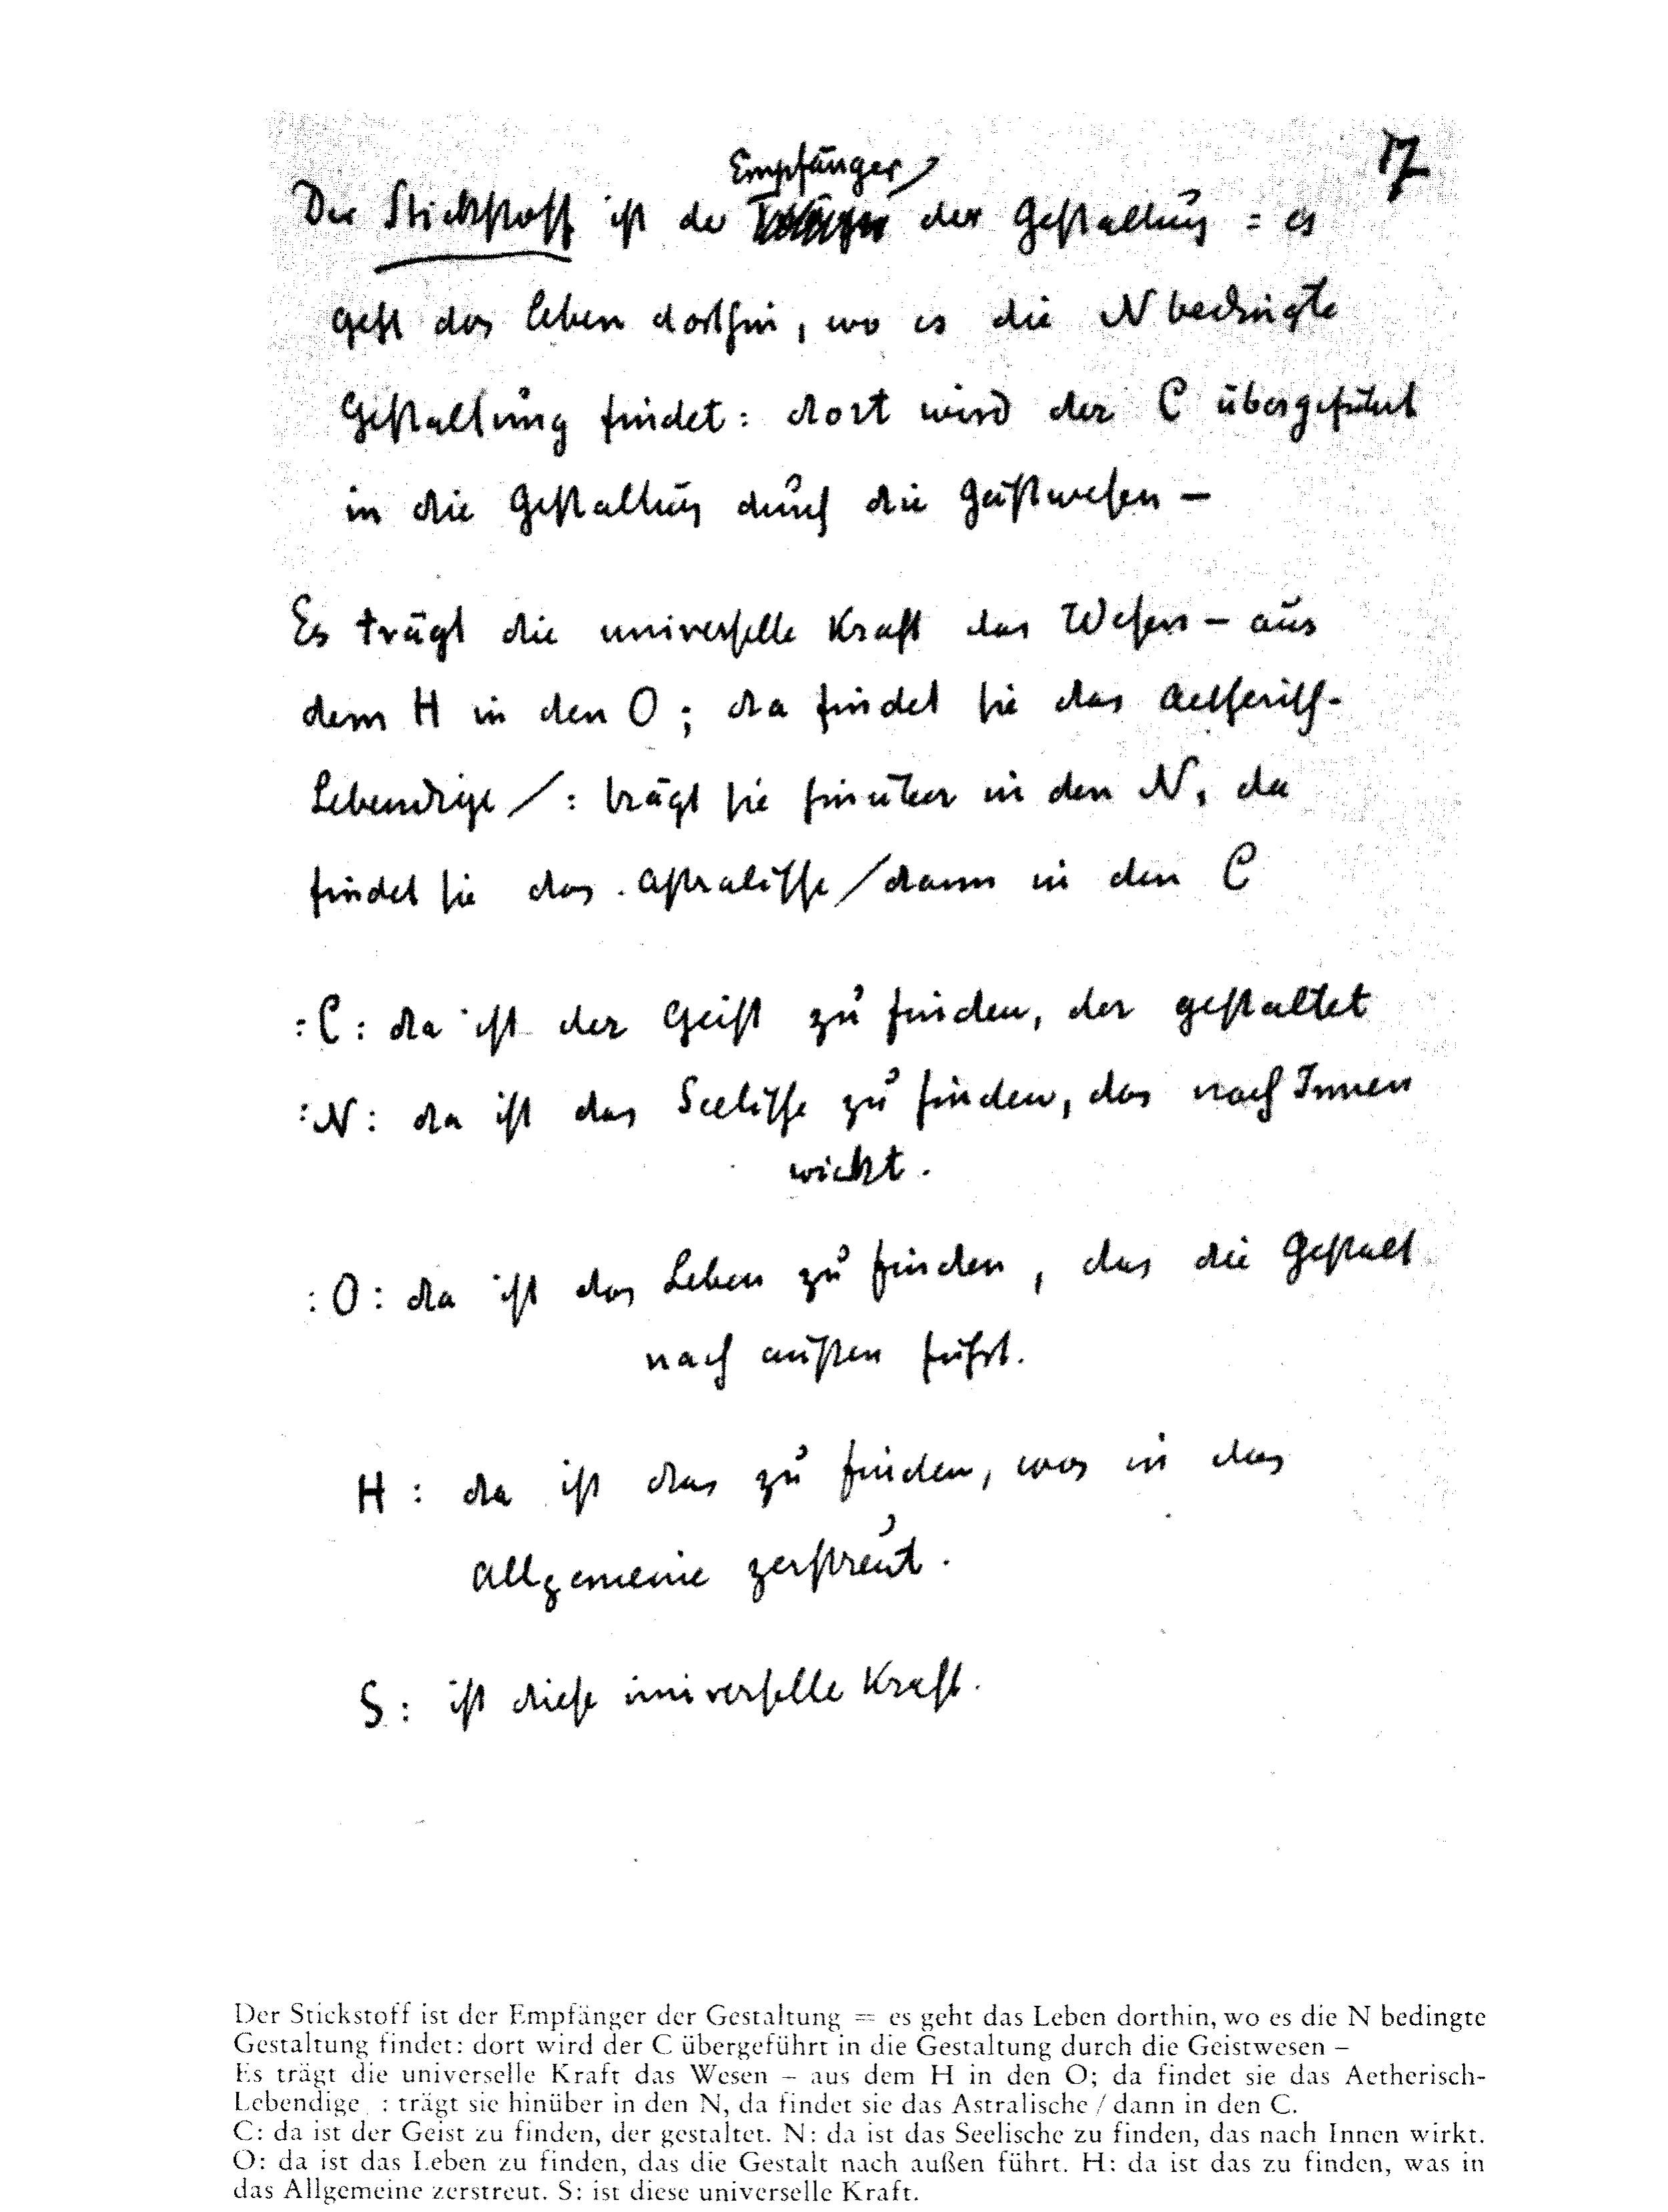 17
Empfänger
Der Stickstoff ist der der Gestaltung = es
geht das Leben dorthin, wo es die N bedingte
Gestaltung findet: dort wird der C übergeführt
in die Gestaltung durch die Geistwesen –
Es trägt die universelle Kraft das Wesen – aus
dem H in den O; da findet sie das Aetherisch-
Lebendige /: trägt sie hinüber in den N, da
findet sie das Astralische / dann in den C
:C: da ist der Geist zu finden, der gestaltet
:N: da ist das Seelische zu finden, das nach Innen
wirkt.
:O: da ist das Leben zu finden, das die Gestalt
nach außen führt.
H: da ist das zu finden, was in das
Allgemeine zerstreut.
S: ist diese universelle Kraft.
Der Stickstoff ist der Empfänger der Gestaltung = es geht das Leben dorthin, wo es die N bedingte
Gestaltung findet: dort wird der C übergeführt in die Gestaltung durch die Geistwesen –
Es trägt die universelle Kraft das Wesen – aus dem H in den O; da findet sie das Aetherisch-
Lebendige : trägt sie hinüber in den N, da findet sie das Astralische / dann in den C.
C: da ist der Geist zu finden, der gestaltet. N: da ist das Seelische zu finden, das nach Innen wirkt.
O: da ist das Leben zu finden, das die Gestalt nach außen führt. H: da ist das zu finden, was in
das Allgemeine zerstreut. S: ist diese universelle Kraft.